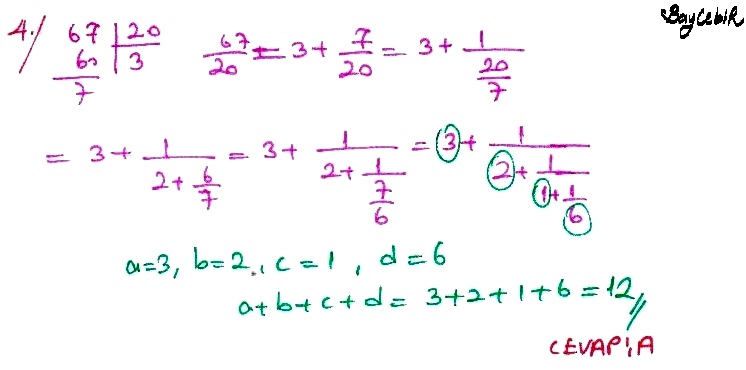 BayCebiR
4./ 67 | 20
60 | 3
7
67/20 = 3 + 7/20 = 3 + 1/(20/7)
= 3 + 1/(2 + 6/7) = 3 + 1/(2 + 1/(7/6)) = 3 + 1/(2 + 1/(1 + 1/6))
a=3, b=2, c=1, d=6
a+b+c+d = 3+2+1+6 = 12//
CEVAP: A